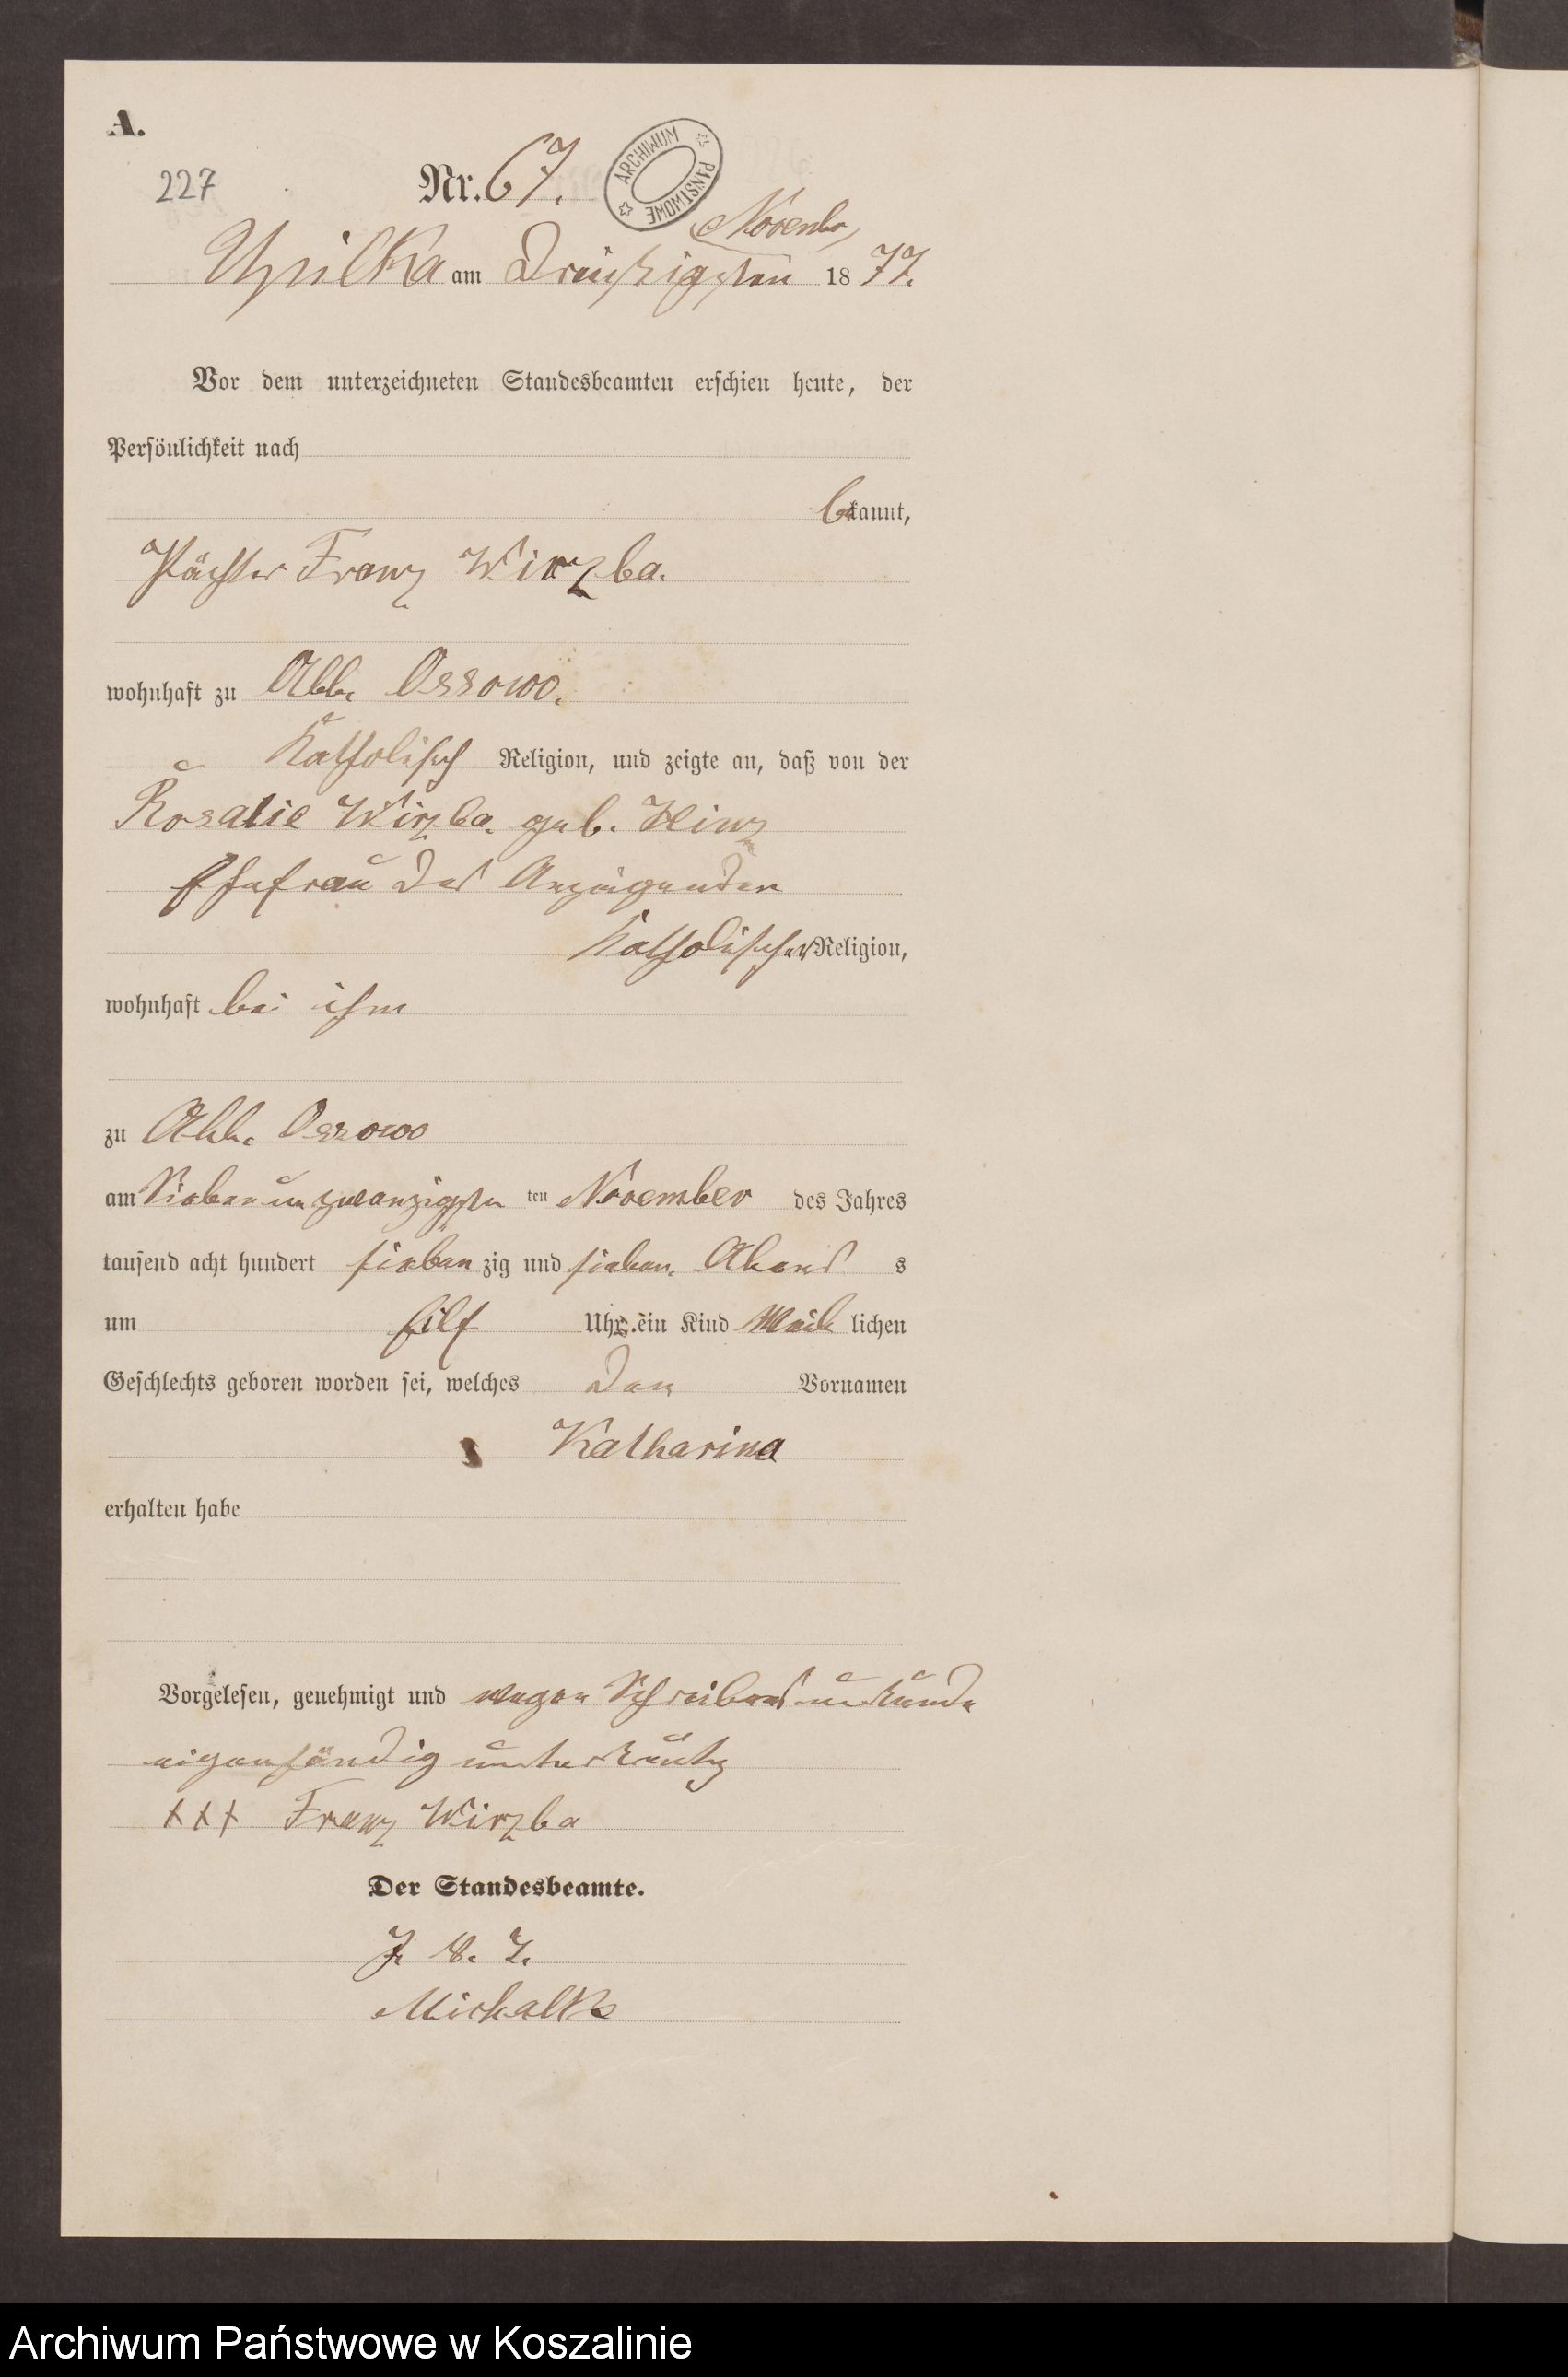 A.
227
Nr. 67.
ARCHIWUM PAŃSTWOWE
Novembr
Upilka am Dreißigsten 1877.
Vor dem unterzeichneten Standesbeamten erschien heute, der
Persönlichkeit nach
bekannt,
Pächter Franz Wirzba.
wohnhaft zu Abb. Ossowo.
Katholisch Religion, und zeigte an, daß von der
Rosalie Wirzba. geb. Hinz
Ehefrau des Anzeigenden
Katholischer Religion,
wohnhaft bei ihm
zu Abb. Ossowo
am Siebenunzwanzigsten ten November des Jahres
tausend acht hundert siebenzig und sieben. Abends
um eilf Uhr. ein Kind Weiblichen
Geschlechts geboren worden sei, welches den Vornamen
Katharina
erhalten habe
Vorgelesen, genehmigt und wegen Schreibensunkunde
eigenhändig unterkreutz
+++ Franz Wirzba
Der Standesbeamte.
J. V.